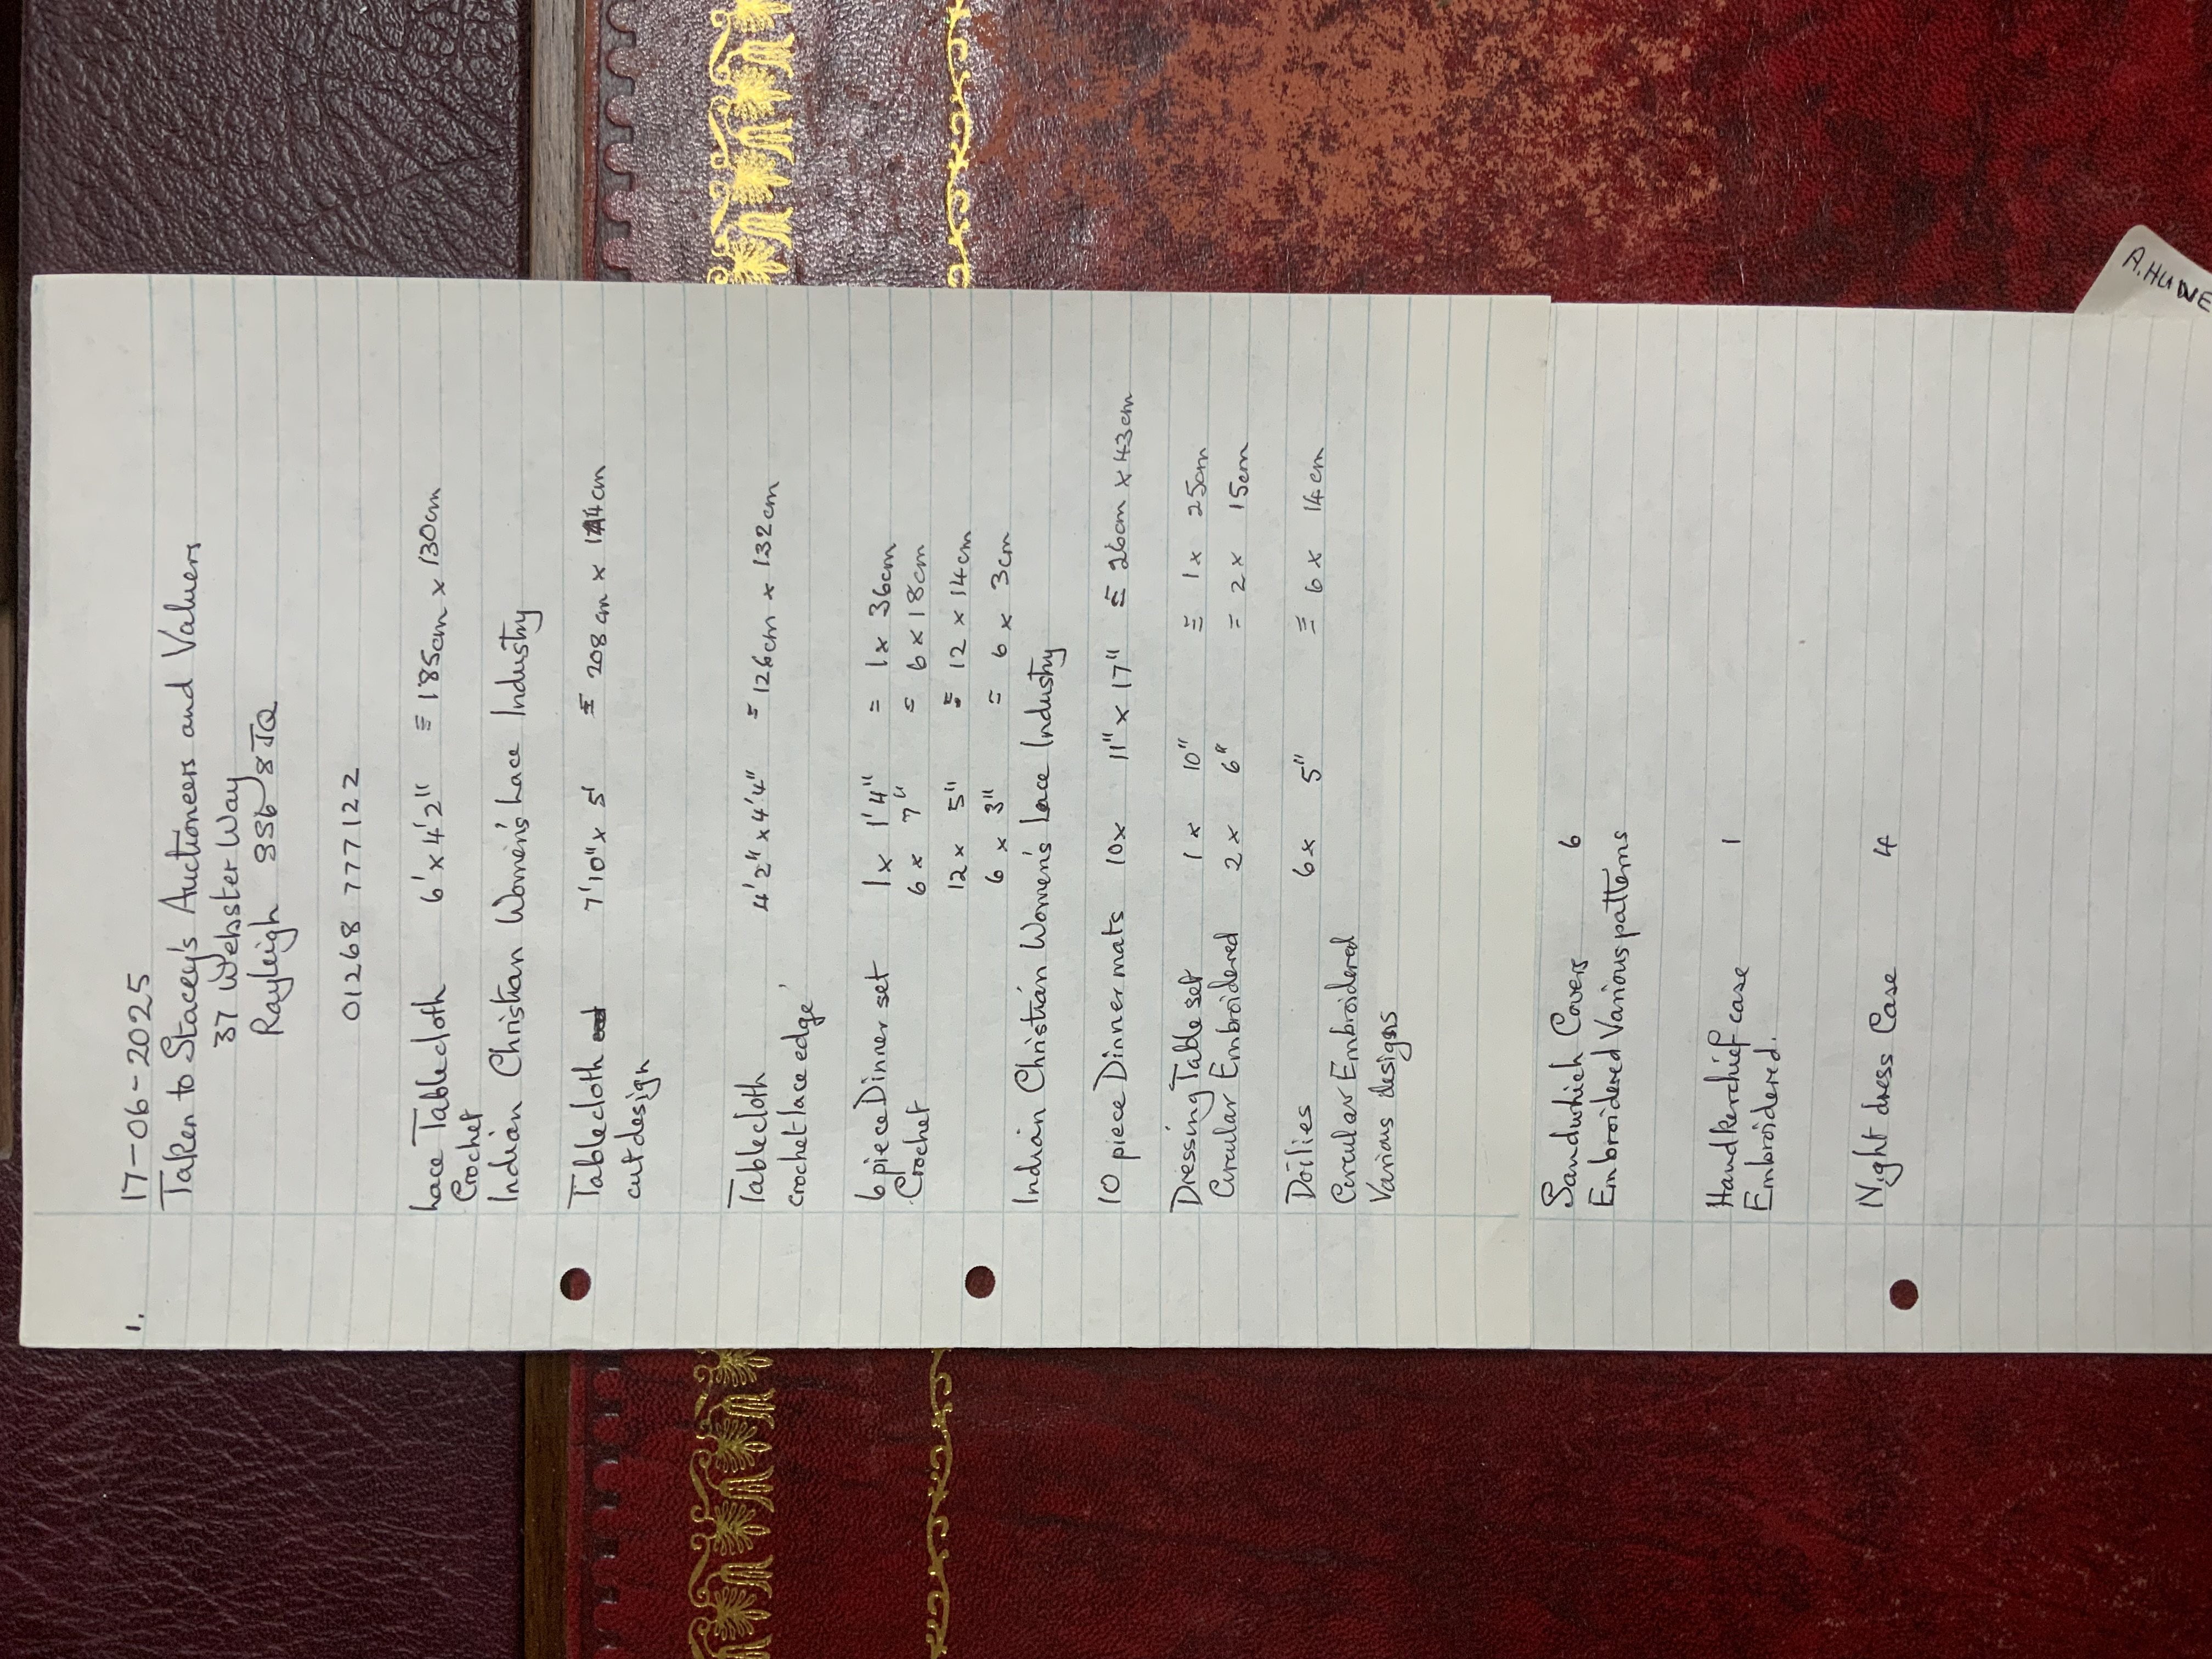 1. 17-06-2025
Taken to Stacey's Auctioneers and Valuers
37 Webster Way
Rayleigh SS6 8JQ
01268 777122
Lace Tablecloth 6' x 4'2" ≡ 185cm x 130cm
Crochet
Indian Christian Women's Lace Industry
Tablecloth 7'10" x 5' ≡ 208cm x 144cm
cut design
Tablecloth 4'2" x 4'4" = 126cm x 132cm
crochet lace edge'
6 piece Dinner set 1 x 1'4" = 1 x 36cm
Crochet 6 x 7" = 6 x 18cm
12 x 5" = 12 x 14cm
6 x 3" = 6 x 3cm
Indian Christian Women's Lace Industry
10 piece Dinner mats 10x 11" x 17" ≡ 26cm x 43cm
Dressing Table set 1 x 10" ≡ 1 x 25cm
Circular Embroidered 2 x 6" = 2 x 15cm
Doilies 6 x 5" ≡ 6 x 14cm
Circular Embroidered
Various designs
Sandwhich Covers 6
Embroidered Various patterns
Handkerchief case 1
Embroidered.
Night dress Case 4
A. HUDNE